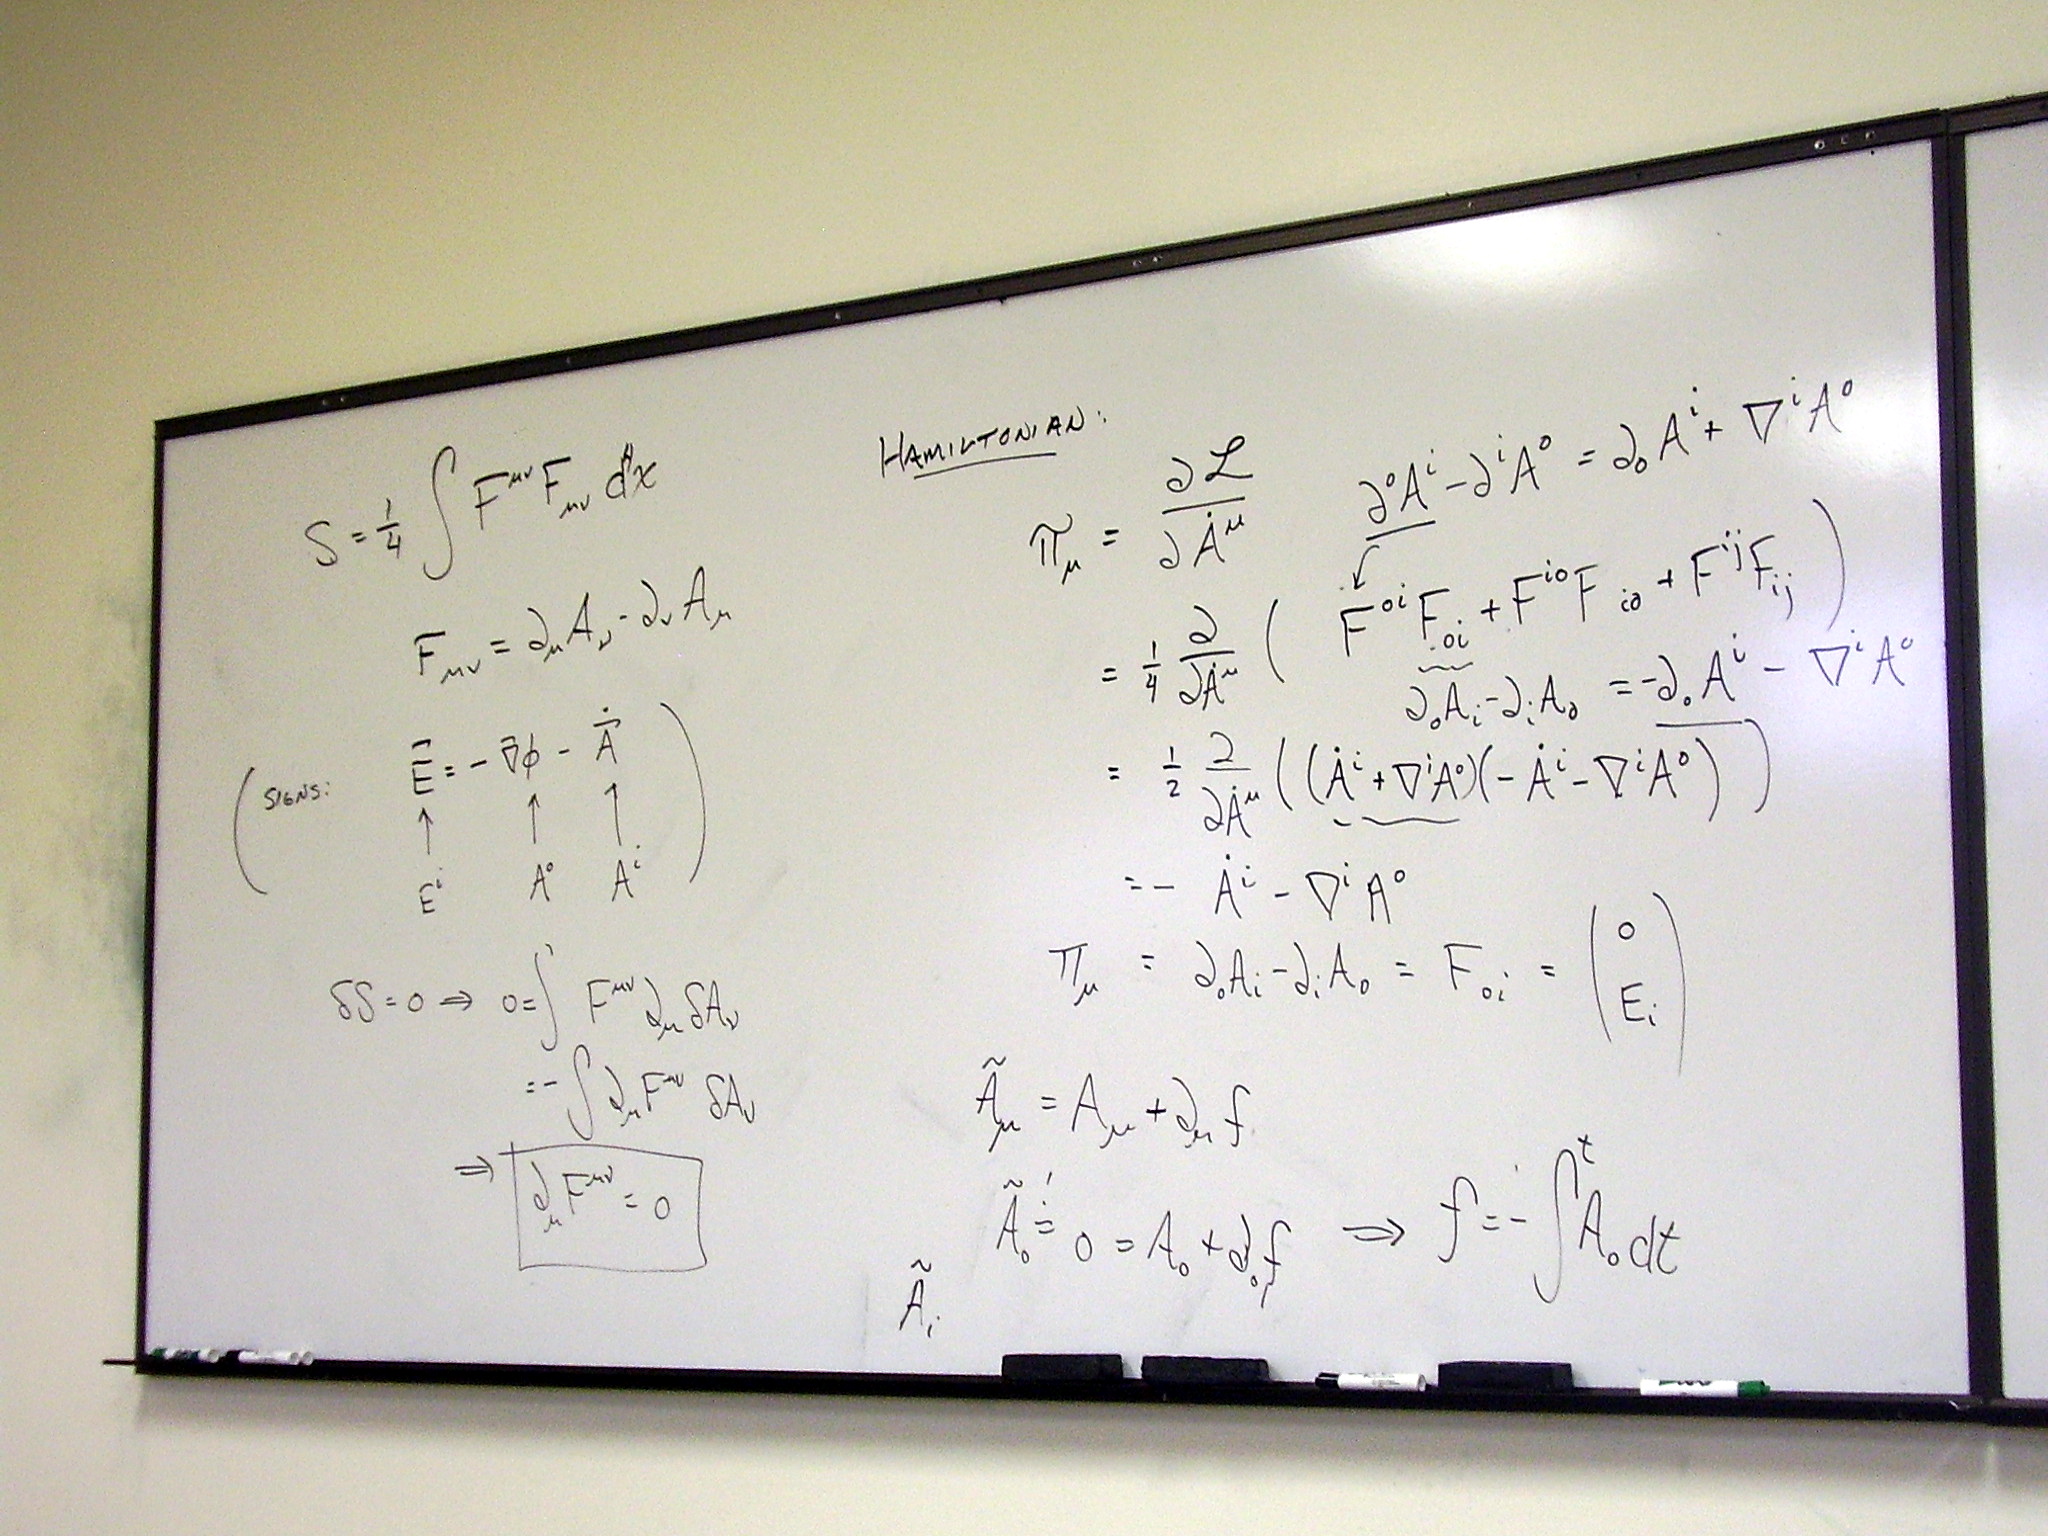 S = 1/4 ∫ F^{μν} F_{μν} d⁴x
F_{μν} = ∂_μ A_ν - ∂_ν A_μ
( SIGNS: E⃗ = - ∇⃗φ - Ȧ⃗ )
↑ ↑ ↑
E^i A^0 A^i
δS = 0 ⇒ 0 = ∫ F^{μν} ∂_μ δA_ν
= - ∫ ∂_μ F^{μν} δA_ν
⇒ ∂_μ F^{μν} = 0
HAMILTONIAN:
π_μ = ∂ℒ/∂Ȧ^μ
∂^0 A^i - ∂^i A^0 = ∂_0 A^i + ∇^i A^0
= 1/4 ∂/∂Ȧ^μ ( F^{0i} F_{0i} + F^{i0} F_{i0} + F^{ij} F_{ij} )
∂_0 A_i - ∂_i A_0 = - ∂_0 A^i - ∇^i A^0
= 1/2 ∂/∂Ȧ^μ ( (Ȧ^i + ∇^i A^0)(- Ȧ^i - ∇^i A^0) )
= - Ȧ^i - ∇^i A^0
π_μ = ∂_0 A_i - ∂_i A_0 = F_{0i} = ( 0
E_i )
Ã_μ = A_μ + ∂_μ f
Ã_0 = 0 = A_0 + ∂_0 f ⇒ f = - ∫^t A_0 dt
Ã_i